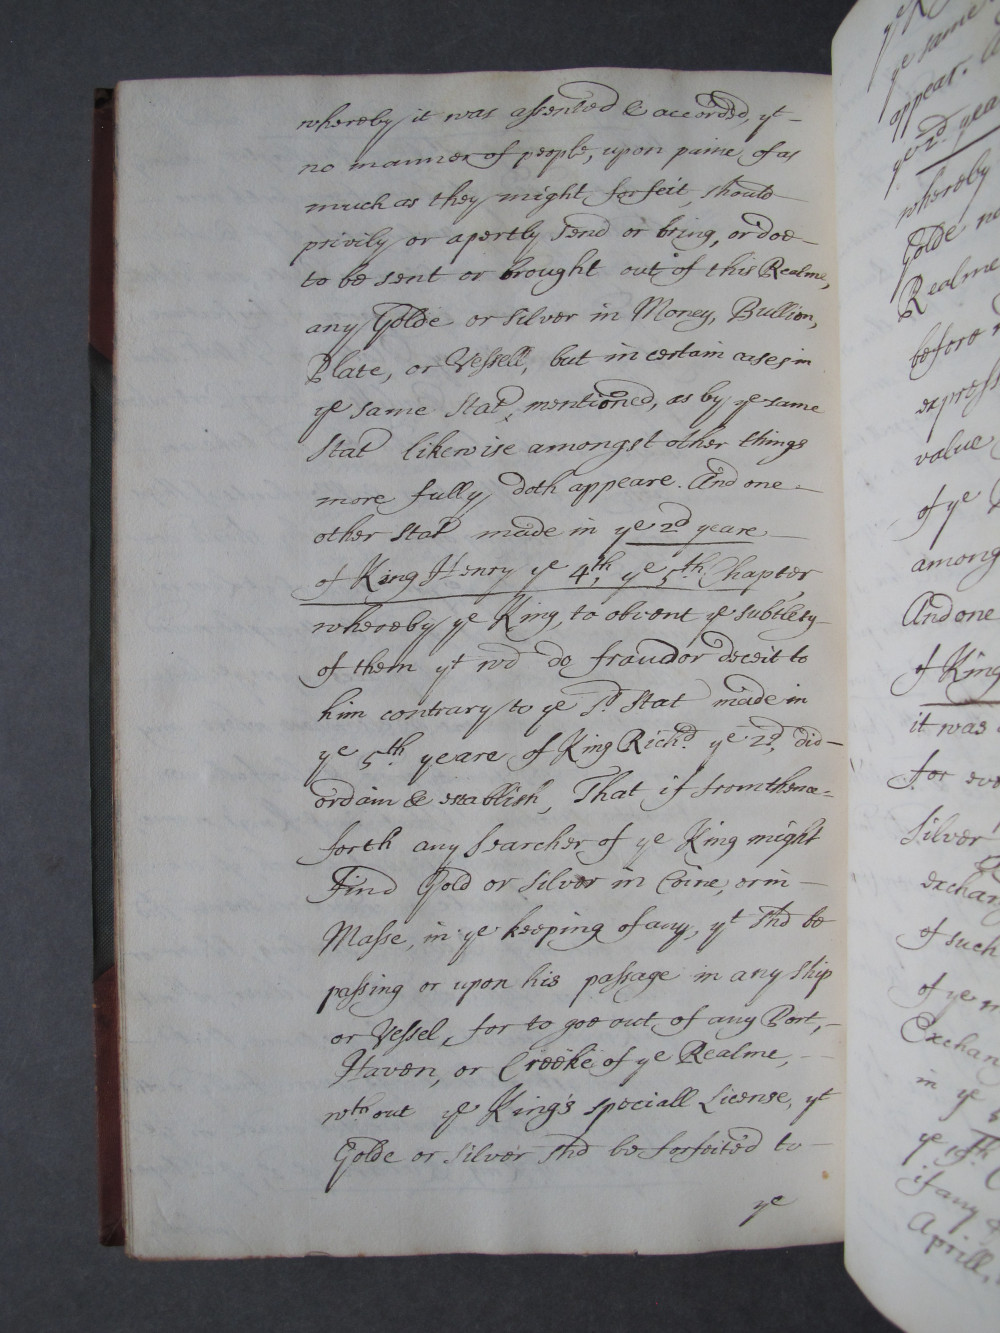 whereby it was assented & accorded, yt
no manner of people, upon paine of as
much as they might forfeit, should
privily or apertly send or bring, or doe
to be sent or brought out of this Realme,
any Golde or Silver in Money, Bullion,
Plate, or Vessell, but in certain cases in
ye same Stat, mentioned, as by ye same
Stat likewise amongst other things
more fully doth appeare. And one
other Stat made in ye 2d yeare
of King Henry ye 4th, ye 5th Chapter
whereby ye King, to obvent ye subtlety
of them yt wd do fraud or deceit to
him contrary to ye sd Stat made in
ye 5th yeare of King Richd ye 2d, did
ordain & establish, That if from thence-
forth any Searcher of ye King might
Find Gold or Silver in Coine, or in
Masse, in ye keeping of any, yt shd be
passing or upon his passage in any Ship
or Vessel, for to goe out of any Port,
Haven, or Creeke of ye Realme,
wth out ye King's speciall License, yt
Golde or Silver shd be forfeited to
ye
ye same
appear. 
ye 2d yea
whereby
Golde no
Realme
before
express
value
of ye
among
And one
of King
it was
for eve
Silver
exchan
of such
of ye
Exchan
in ye
ye 19th
if any
Aprill,